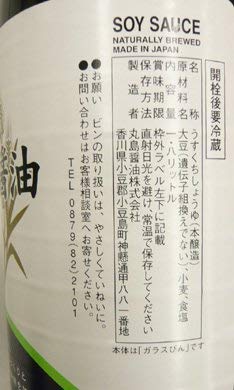 SOY SAUCE
NATURALLY BREWED
MADE IN JAPAN
開栓後要冷蔵
名称 うすくちしょうゆ(本醸造)
原材料名 大豆(遺伝子組換えでない)、小麦、食塩
内容量 一・八リットル
賞味期限 枠外ラベル左下に記載
保存方法 直射日光を避け、常温で保存してください
製造者 丸島醤油株式会社
香川県小豆郡小豆島町神懸通甲八八一番地
●お願い ビンの取り扱いは、やさしくていねいに。
●お問い合わせはお客様相談室へお寄せください。
TEL 0879(82)2101
油
本体は「ガラスびん」です